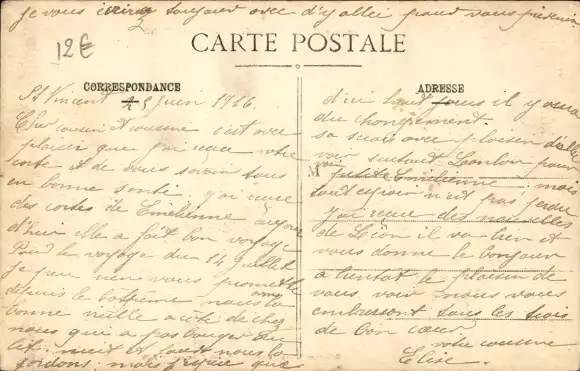 je vous écriray toujours avec d'y aller pour vous prévenir
12€
CARTE POSTALE
CORRESPONDANCE
ADRESSE
St Vincent 25 juin 1916.
Cher cousin et cousine c'est avec
plaisir que j'ai reçue votre
carte et de vous savoir tous
en bonne santé j'ai reçue
des cartes de Emilienne aujour
d'hui elle a fait bon voyage
Pour le voyage du 14 juillet
je peu rien vous promettre
depuis le
bonne mille a côté de chez
nous qui a pas bouger du
lit nuit et jour nous la
gardons mais j'espère que
d'ici huit jours il y aura
du changement.
sa serais avec plaisir d'aller
voir surtout pour
M
voir petite Emilienne mais
tout espoir n'est pas perdu
j'ai reçue des nouvelles
de Léon il va bien et
vous donne le bonjour
a bientôt le plaisir de
vous voir nous vous
embrassont tous les trois
de bon cœur
votre cousine
Elise.